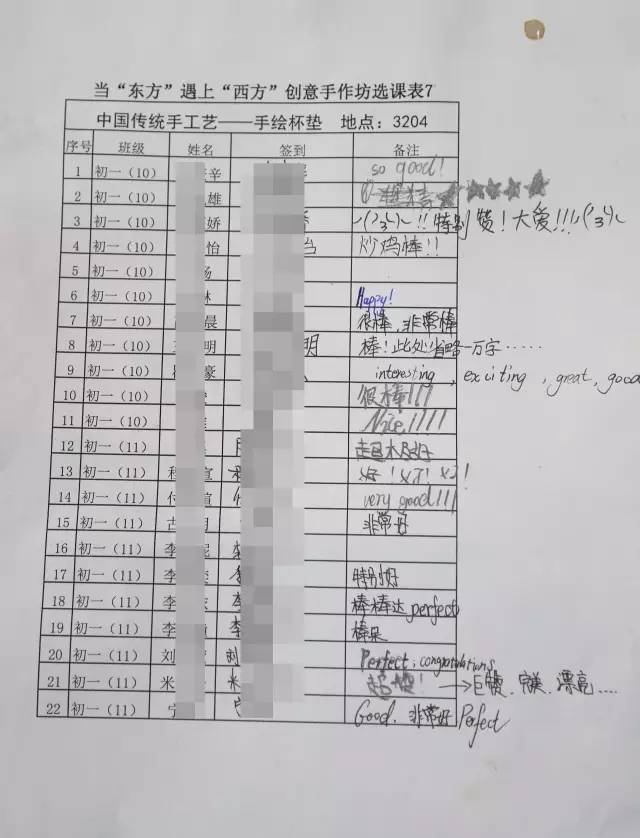 当“东方”遇上“西方”创意手作坊选课表7
中国传统手工艺——手绘杯垫 地点：3204
序号 班级 姓名 签到 备注
1 初一（10） 辛 so good!
2 初一（10） 雄
3 初一（10） 娇 !! 特别赞！大爱!!!
4 初一（10） 怡 炒鸡棒!!
5 初一（10）
6 初一（10） 琳 Happy!
7 初一（10） 晨 很棒，非常棒
8 初一（10） 明 明 棒！此处省略一万字……
9 初一（10） 豪 interesting, exciting, great, good
10 初一（10） 很棒!!!
11 初一（10） Nice!!!!
12 初一（11） 超极好
13 初一（11） 程 萱 好！好！好！
14 初一（11） 付 萱 very good!!!
15 初一（11） 古 明 非常好
16 初一（11） 李 妮 李
17 初一（11） 李 特别好
18 初一（11） 李 李 棒棒达 perfect
19 初一（11） 李 李 棒呆
20 初一（11） 刘 刘 Perfect, congratulations
21 初一（11） 米 米 超赞! →巨赞、完美、漂亮....
22 初一（11） 宁 Good、非常好 Perfect